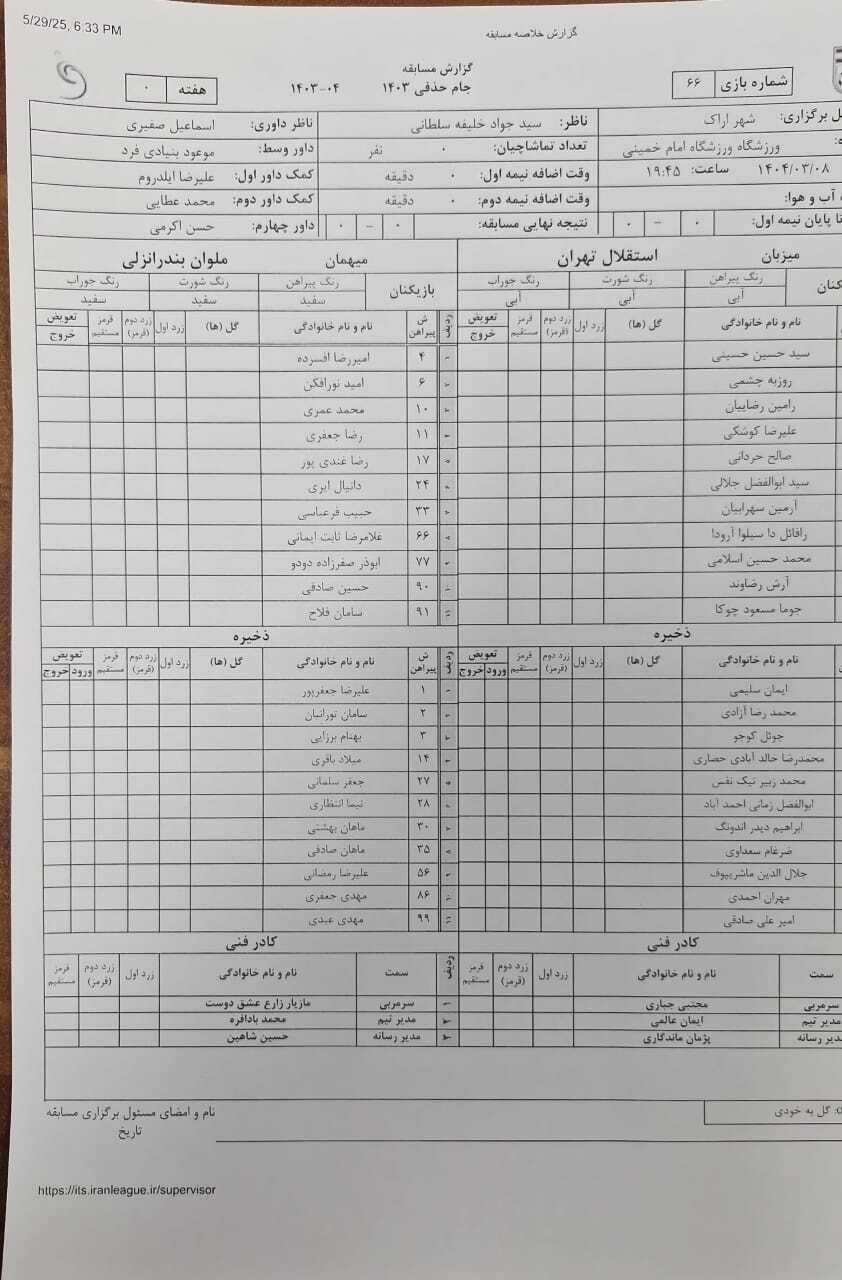 5/29/25, 6:33 PM
گزارش خلاصه مسابقه
گزارش مسابقه
شماره بازی ۶۶
جام حذفی ۱۴۰۳ ۱۴۰۳-۰۴
هفته ۰
شهر اراک ناظر: سید جواد خلیفه سلطانی ناظر داوری: اسماعیل صفیری
ورزشگاه ورزشگاه امام خمینی تعداد تماشاچیان: ۰ نفر داور وسط: موعود بنیادی فرد
۱۴۰۴/۰۳/۰۸ ساعت: ۱۹:۴۵ وقت اضافه نیمه اول: ۰ دقیقه کمک داور اول: علیرضا ایلدروم
آب و هوا: وقت اضافه نیمه دوم: ۰ دقیقه کمک داور دوم: محمد عطایی
تا پایان نیمه اول: ۰ - ۰ نتیجه نهایی مسابقه: ۰ - ۰ داور چهارم: حسن اکرمی
میزبان استقلال تهران میهمان ملوان بندرانزلی
رنگ پیراهن رنگ شورت رنگ جوراب بازیکنان رنگ پیراهن رنگ شورت رنگ جوراب
آبی آبی آبی سفید سفید سفید
نام و نام خانوادگی گل (ها) زرد اول زرد دوم (قرمز) قرمز مستقیم تعویض خروج ردیف ش پیراهن نام و نام خانوادگی گل (ها) زرد اول زرد دوم (قرمز) قرمز مستقیم تعویض خروج
سید حسین حسینی ۴ امیررضا افسرده
روزبه چشمی ۶ امید نورافکن
رامین رضاییان ۱۰ محمد عمری
علیرضا کوشکی ۱۱ رضا جعفری
صالح حردانی ۱۷ رضا غندی پور
سید ابوالفضل جلالی ۲۴ دانیال ایری
آرمین سهرابیان ۳۳ حبیب فرعباسی
رافائل دا سیلوا آرودا ۶۶ غلامرضا ثابت ایمانی
محمد حسین اسلامی ۷۷ ابوذر صفرزاده دودو
آرش رضاوند ۹۰ حسین صادقی
جوما مسعود چوکا ۹۱ سامان فلاح
ذخیره ذخیره
نام و نام خانوادگی گل (ها) زرد اول زرد دوم (قرمز) قرمز مستقیم تعویض ورود خروج ردیف ش پیراهن نام و نام خانوادگی گل (ها) زرد اول زرد دوم (قرمز) قرمز مستقیم تعویض ورود خروج
ایمان سلیمی ۱ علیرضا جعفرپور
محمد رضا آزادی ۲ سامان تورانیان
جوئل کوجو ۳ بهنام برزایی
محمدرضا خالد آبادی حصاری ۱۴ میلاد باقری
محمد زبیر نیک نفس ۲۷ جعفر سلمانی
ابوالفضل زمانی احمد آباد ۲۸ نیما انتظاری
ابراهیم دیدر اندونگ ۳۰ ماهان بهشتی
ضرغام سعداوی ۳۵ ماهان صادقی
جلال الدین ماشریپوف ۵۶ علیرضا رمضانی
مهران احمدی ۸۶ مهدی جعفری
امیر علی صادقی ۹۹ مهدی عبدی
کادر فنی کادر فنی
سمت نام و نام خانوادگی زرد اول زرد دوم (قرمز) قرمز مستقیم ردیف سمت نام و نام خانوادگی زرد اول زرد دوم (قرمز) قرمز مستقیم
سرمربی مجتبی جباری ۱ سرمربی مازیار زارع عشق دوست
مدیر تیم ایمان عالمی ۲ مدیر تیم محمد بادافره
مدیر رسانه پژمان ماندگاری ۳ مدیر رسانه حسین شاهین
گل به خودی
نام و امضای مسئول برگزاری مسابقه
تاریخ
https://its.iranleague.ir/supervisor